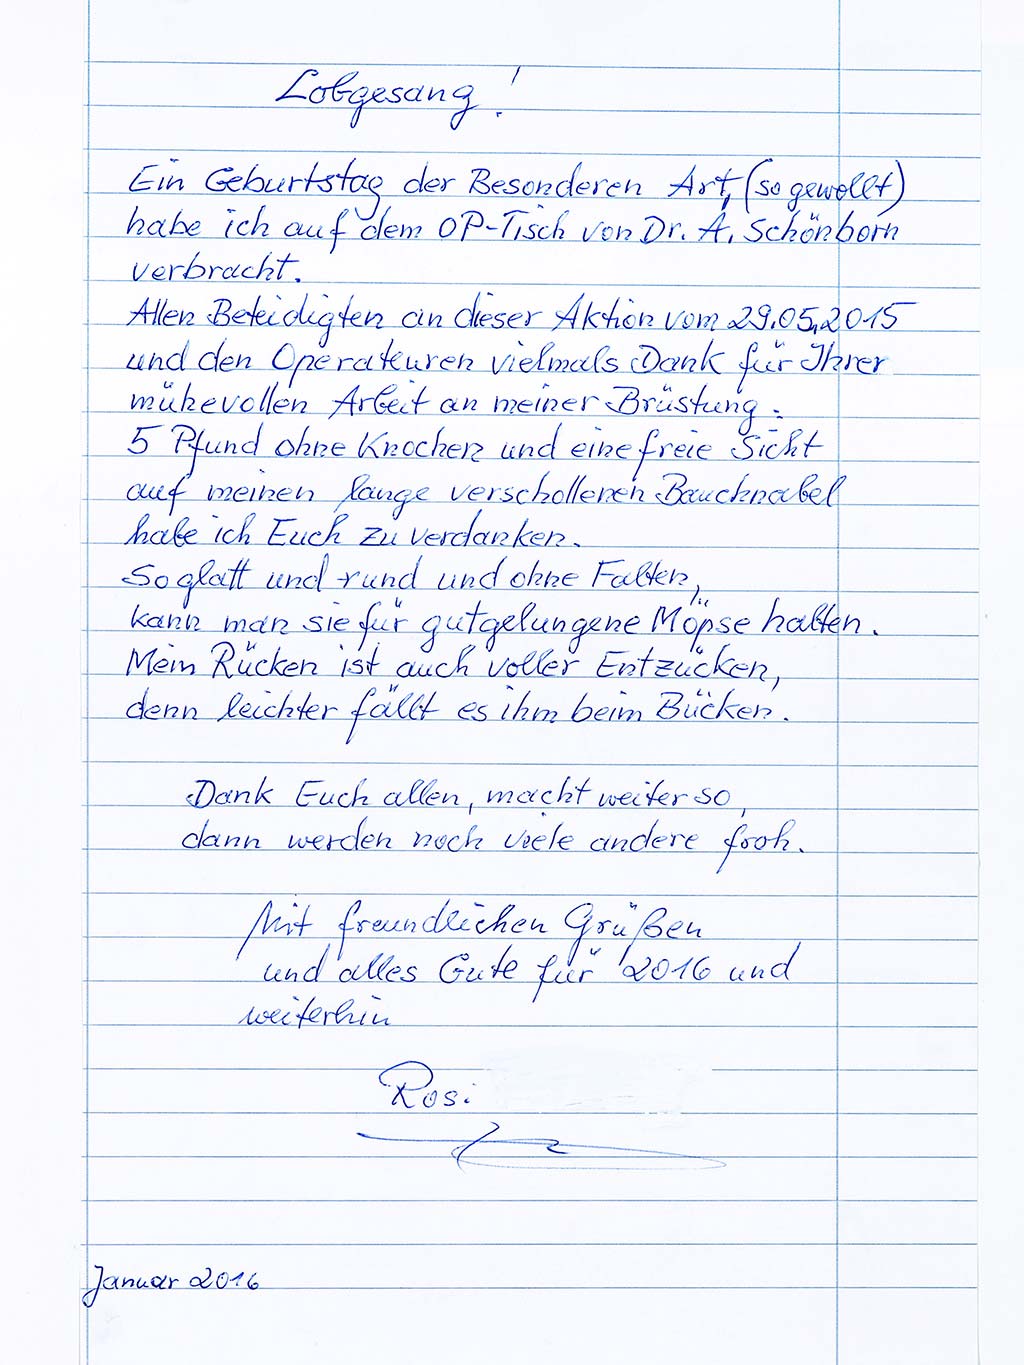 Lobgesang!
Ein Geburtstag der Besonderen Art, (so gewollt)
habe ich auf dem OP-Tisch von Dr. A. Schönborn
verbracht.
Allen Beteidigten an dieser Aktion vom 29.05.2015
und den Operateuren vielmals Dank für Ihrer
mühevollen Arbeit an meiner Brüstung.
5 Pfund ohne Knochen und eine freie Sicht
auf meinen lange verschollenen Bauchnabel
habe ich Euch zu verdanken.
So glatt und rund und ohne Falten,
kann man sie für gutgelungene Möpse halten.
Mein Rücken ist auch voller Entzücken,
denn leichter fällt es ihm beim Bücken.
Dank Euch allen, macht weiter so,
dann werden noch viele andere froh.
Mit freundlichen Grüßen
und alles Gute für 2016 und
weiterhin
Rosi
Januar 2016